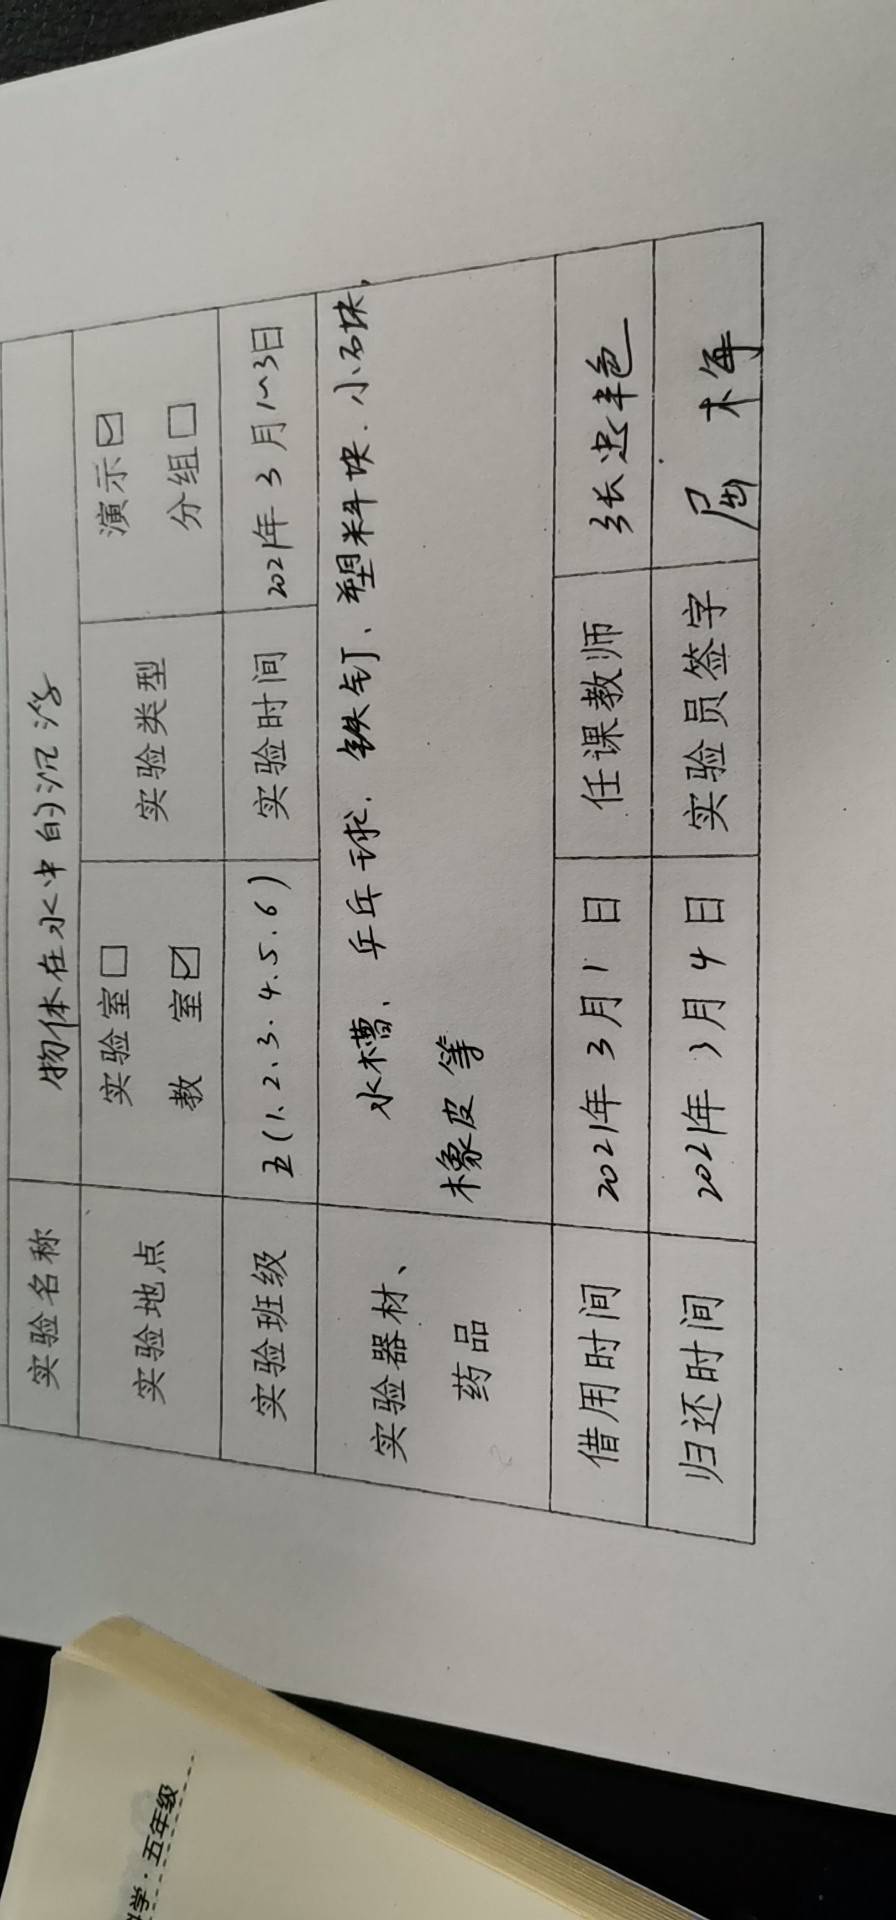 实验名称 物体在水中的沉浮
实验地点 实验室□ 教 室☑ 实验类型 演示☑ 分组□
实验班级 五(1、2、3、4、5、6) 实验时间 2021年3月1~3日
实验器材、药品 水槽、乒乓球、铁钉、塑料块、小石块、
橡皮等
借用时间 2021年3月1日 任课教师 张忠艳
归还时间 2021年3月4日 实验员签字 屈 梅
学·五年级